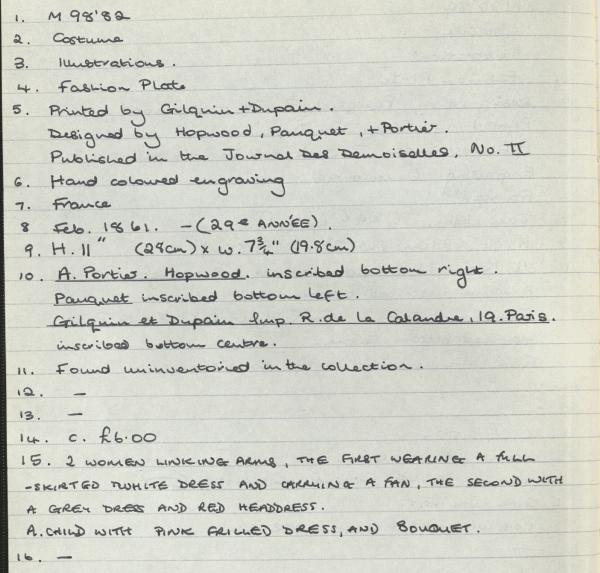 1. M 98'82
2. Costume
3. Illustrations.
4. Fashion Plate
5. Printed by Gilquin + Dupain.
Designed by Hopwood, Pauquet, + Portier.
Published in the Journal Des Demoiselles, No. II
6. Hand coloured engraving
7. France
8 Feb. 1861. - (29e ANNÉE).
9. H. 11" (28cm) x W. 7¾" (19.8cm)
10. A. Portier. Hopwood. inscribed bottom right.
Pauquet inscribed bottom left.
Gilquin et Dupain Imp. R. de la Calandre, 19. Paris.
inscribed bottom centre.
11. Found uninventoried in the collection.
12. -
13. -
14. c. £6.00
15. 2 WOMEN LINKING ARMS, THE FIRST WEARING A FULL
-SKIRTED WHITE DRESS AND CARRYING A FAN, THE SECOND WITH
A GREY DRESS AND RED HEADDRESS.
A CHILD WITH PINK FRILLED DRESS, AND BOUQUET.
16. -